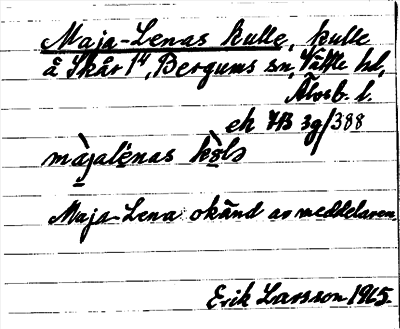 Maja-Lenas kulle, kulle
å Skår 1⁴, Bergums sn, Vättle hd,
Älvsb. l.
ek 7B 3g/388
màjalénas kòls
Maja-Lena okänd av meddelaren.
Erik Larsson 1965